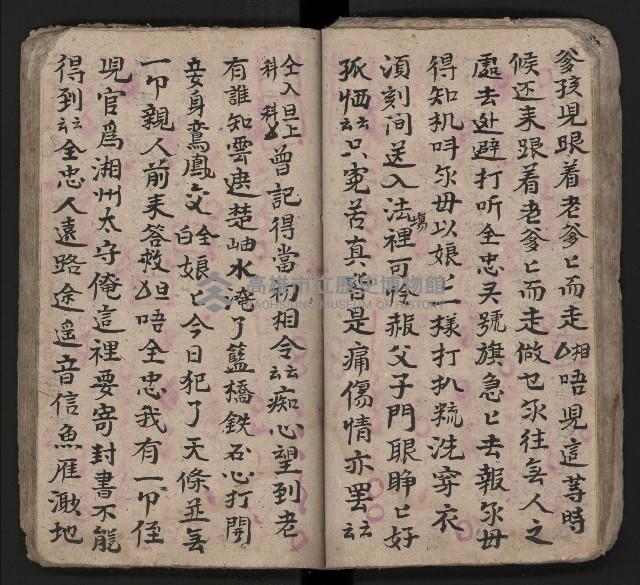 爹孩児跟着老爹〻而走厶相唔児這䓁時
候还来跟着老爹〻而走做乜尔往𠄮人之
處去迯避打听全忠为號旗急〻去報尔毋
得知机呌尔毋以娘〻一樣打扒梳洗穿衣
湏刻間送入法場裡可憐父子門眼睁〻好
孤恓云云只寃苦真苦是痛傷情亦罢云云
仝入科旦上科厶曽記得當初相令云云痴心望到老
有誰知雲迷楚岫水淹了藍橋鉄石心打開
妾身鸞鳳交全白娘〻今日犯了天條並𠄮
一卩親人前来答救厶旦唔全忠我有一卩侄
児官爲湘州太守俺這裡要寄封書不能
得到云云全忠人遠路途遥音信魚雁潵地
高雄市立歷史博物館
KAOHSIUNG MUSEUM OF HISTORY